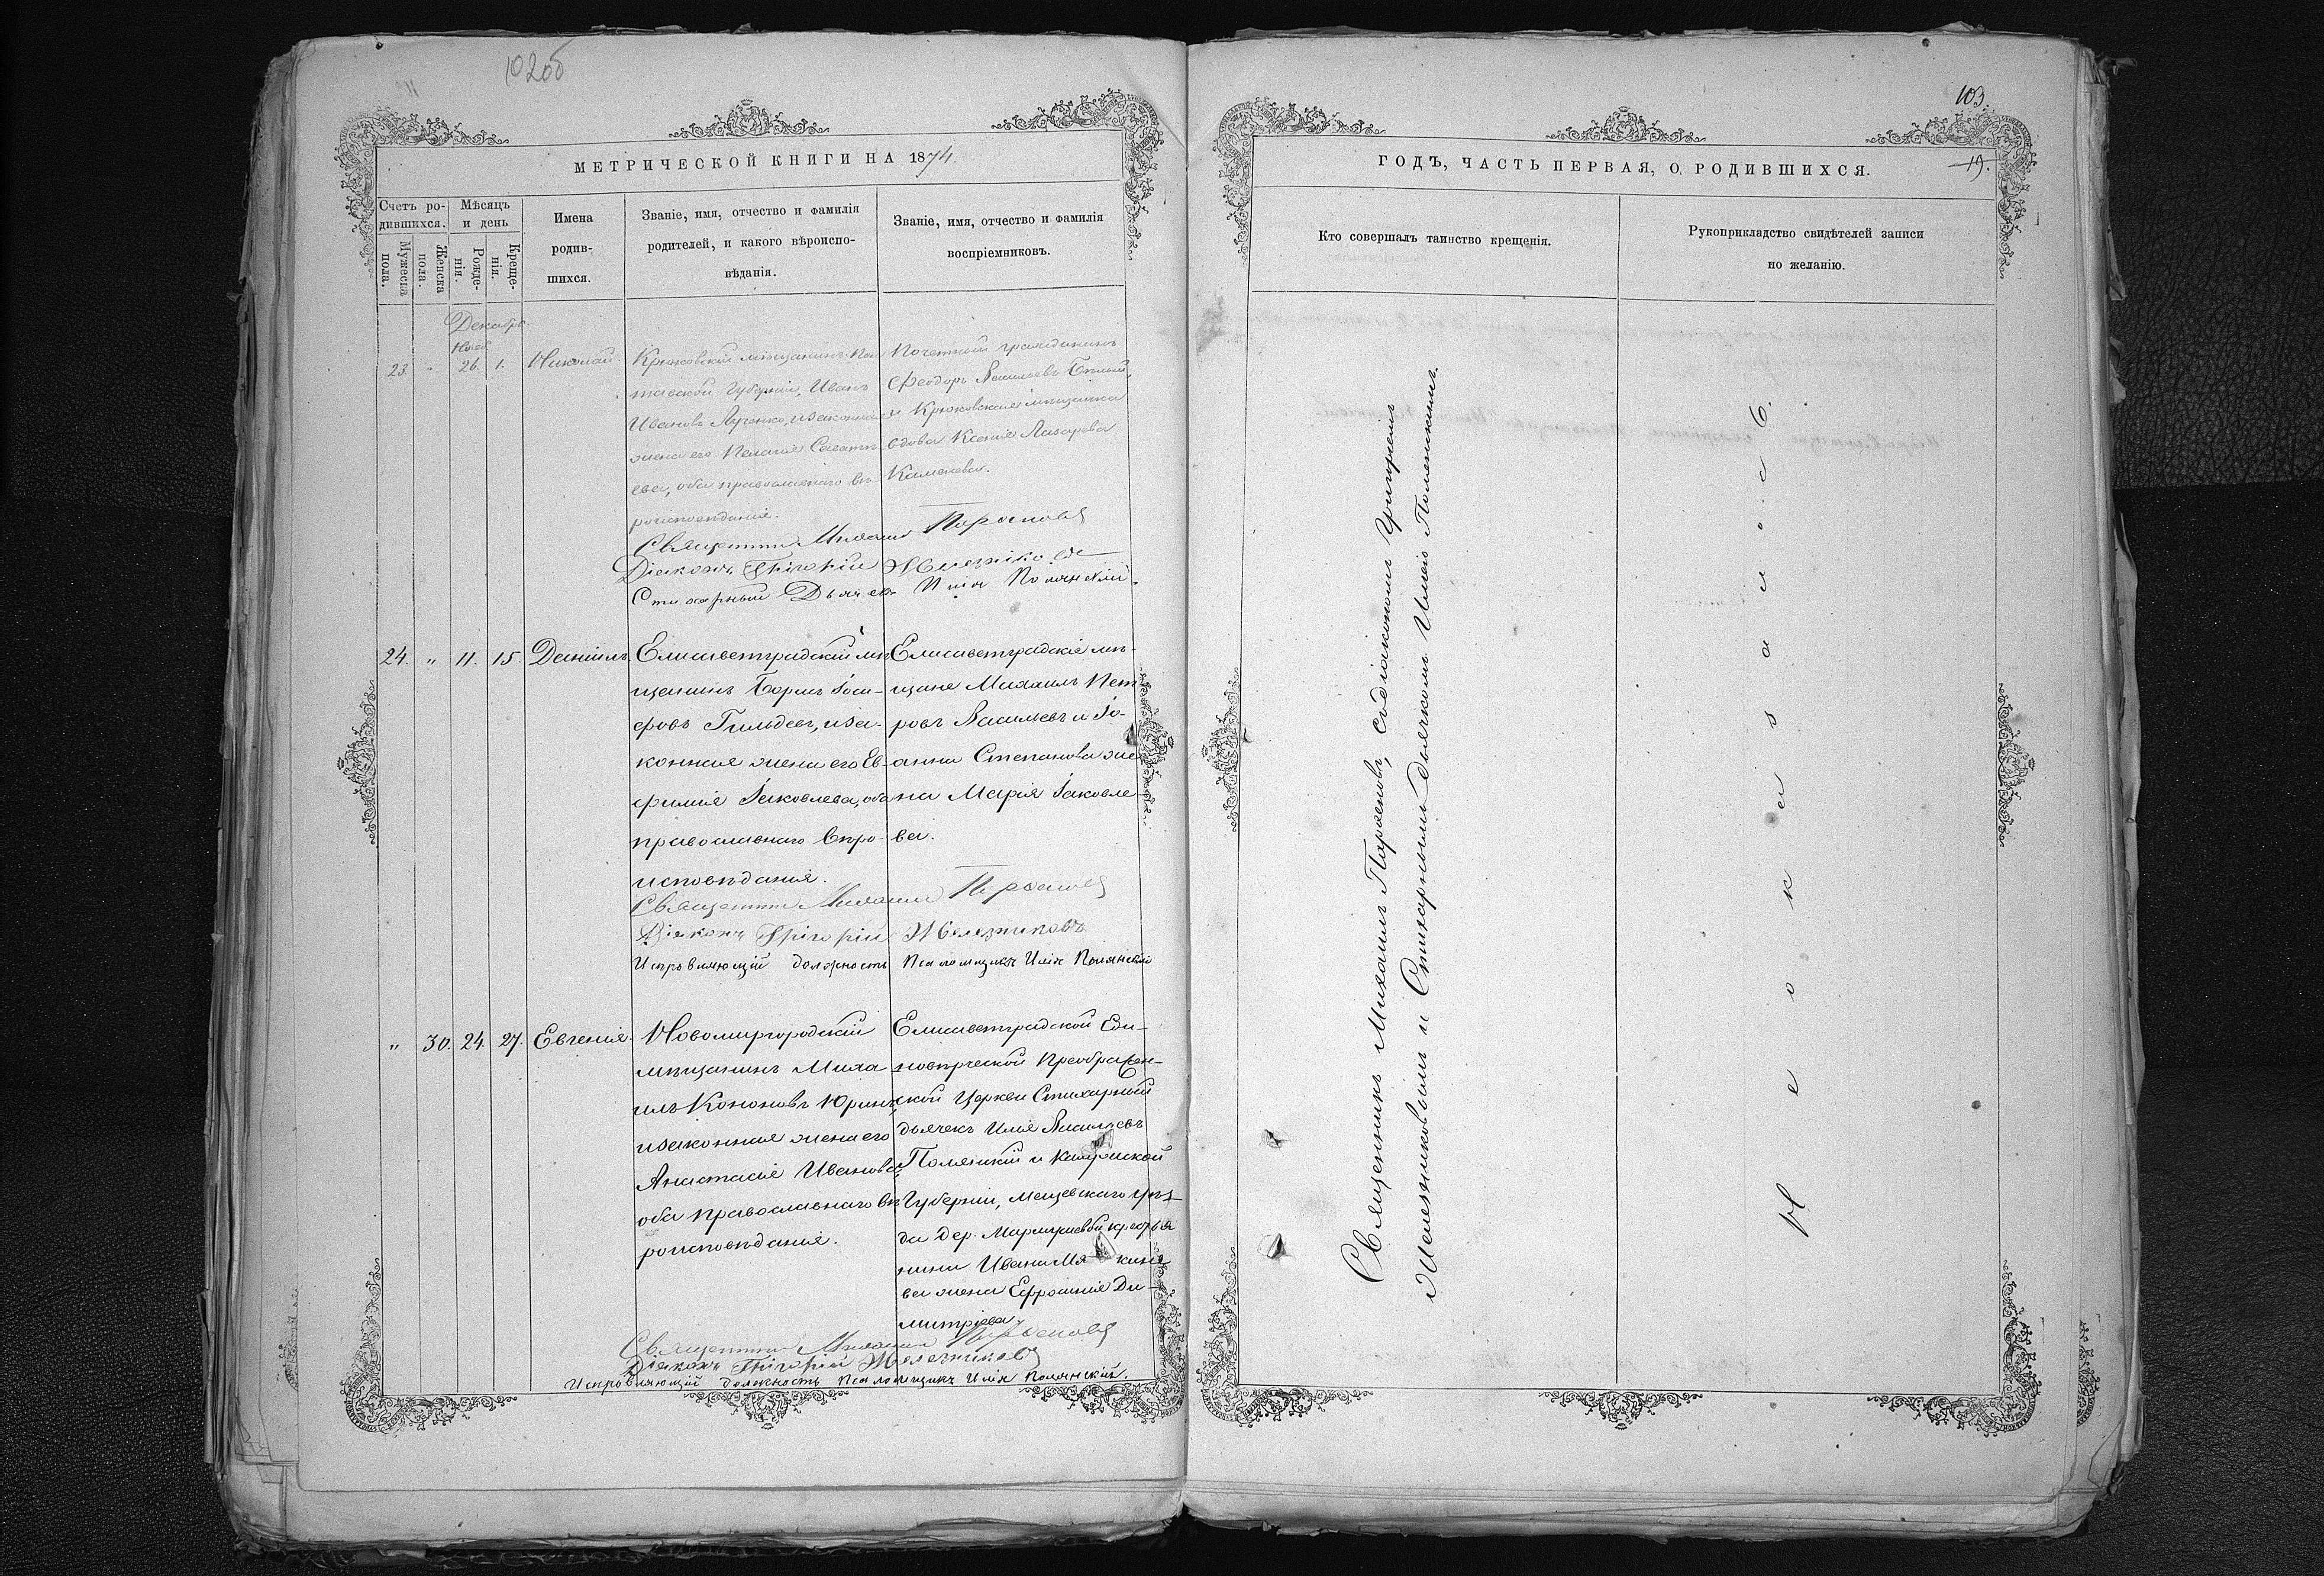 102об
МЕТРИЧЕСКОЙ КНИГИ НА 1874.
Счетъ ро-
дившихся.
Мужеска
пола.
Женска
пола.
Мѣсяцъ
и день
Рожде-
нія.
Креще-
нія.
Имена
родив-
шихся.
Званіе, имя, отчество и фамилія
родителей, и какого вѣроиспо-
вѣданія.
Званіе, имя, отчество и фамилія
воспріемниковъ.
Декабрь
Нояб.
23. " 26. 1. Николай.
Крюковскій мѣщанинъ Пол
тавской Губерніи, Иванъ
Ивановъ Луценко, изаконная
жена его Пелагія
ева, оба православнаго вѣ
роисповѣданія.
Почетный гражданинъ
Феодоръ Васильевъ Бѣлый,
и Крюковская мѣщанка
вдова Ксенія Лазарева
Камалева.
Священникъ Михаилъ Парѳеновъ
Діаконъ Григорій Желѣзниковъ
Стихарный Дьячекъ Илія Полянскій.
24. " 11. 15. Даніилъ.
Елисаветградскій мѣ
щанинъ Борисъ Іоси-
фовъ Гильдевъ, иза-
конная жена его Ев-
фимія Іаковлева, оба
православнаго вѣро-
исповѣданія.
Елисаветградскіе мѣ-
щане Михаилъ Пет
ровъ Васильевъ и Іо-
анна Степанова же
на Марія Іаковле
ва.
Священникъ Михаилъ Парѳеновъ
Діаконъ Григорій Желѣзниковъ
Исправляющій должность Псаломщика Илія Полянскій
" 30. 24. 27. Евгенія.
Новомиргородскій
мѣщанинъ Миха
илъ Кононовъ Юринъ,
изаконная жена его
Анастасія Иванова,
оба православнаго вѣ
роисповѣданія.
Елисаветградской Еди-
новѣрческой Преображен-
ской Церкви Стихарный
дьячекъ Илія Васильевъ
Полянскій и Калужской
Губерніи, Мещевскаго уѣз-
да дер. крестья
нина Ивана
ва жена Ефросинія Ди-
митріева.
Священникъ Михаилъ Парѳеновъ
Діаконъ Григорій Желѣзниковъ
Исправляющій должность Псаломщика Илія Полянскій.
103.
19.
ГОДЪ, ЧАСТЬ ПЕРВАЯ, О РОДИВШИХСЯ.
Кто совершалъ таинство крещенія.
Рукоприкладство свидѣтелей записи
по желанію.
Священникъ Михаилъ Парѳеновъ, съдіакономъ Григоріемъ
Желѣзниковымъ и Стихарнымъ дьячкомъ Иліею Полянскимъ.
Не оказалось.